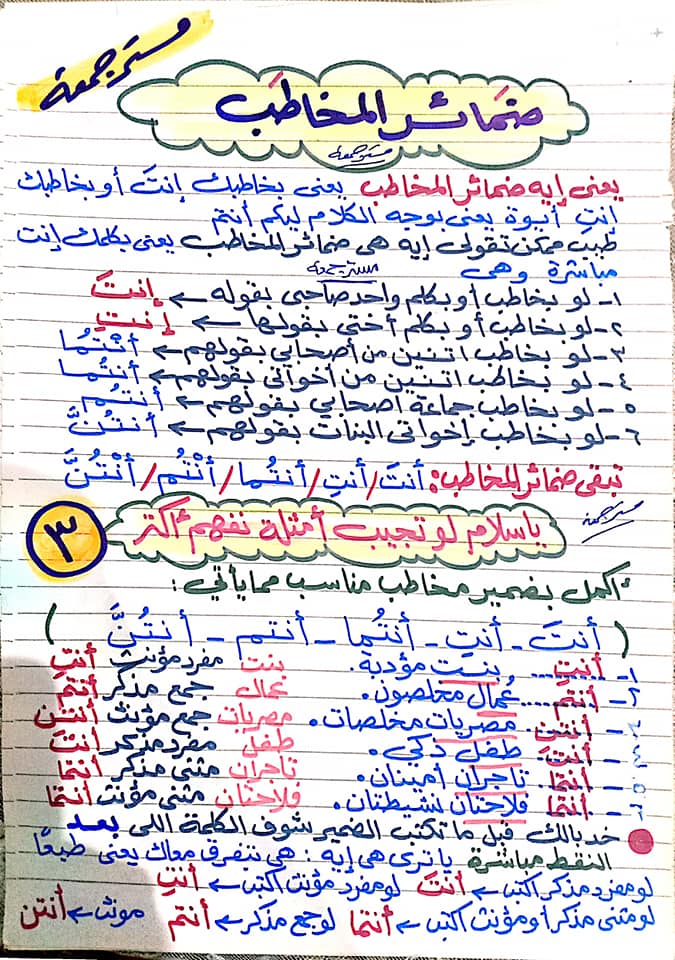 مستر جمعة
ضمائر المخاطب
مستر جمعة
يعنى إيه ضمائر المخاطب يعنى بخاطبك إنتَ أو بخاطبك
إنتِ أيوة يعنى بوجه الكلام ليكم أنتم
طيب ممكن تقولى إيه هى ضمائر المخاطب يعنى بكلمك إنت
مباشرة وهى
مستر جمعة
١- لو بخاطب أو بكلم واحد صاحبى بقوله ← إنتَ
٢- لو بخاطب أو بكلم أختى بقولها ← إنتِ
٣- لو بخاطب اتنين من أصحابى بقولهم ← أنْتُمَا
٤- لو بخاطب اتنين من أخواتى بقولهم ← أنتُما
٥- لو بخاطب جماعة أصحابي بقولهم ← أنتُم
٦- لو بخاطب إخواتى البنات بقولهم ← أنتُنَّ
تبقى ضمائر المخاطب: أنتَ / أنتِ / أنتُما / أنْتُم / أنْتُنَّ
مستر جمعة
ياسلام لو تجيب أمثلة نفهم أكتر
٣
اكمل بضمير مخاطب مناسب مما يأتي:
( أنتَ - أنتِ - أنتُما - أنتم - أنتُنَّ )
١- أنتِ بنت مؤدبة. بنت مفرد مؤنث أنتِ
٢- أنتم عُمال مخلصون. عمال جمع مذكر أنتم
٣- أنتن مصريات مخلصات. مصريات جمع مؤنث أنتن
٤- أنتَ طفل ذكي. طفل مفرد مذكر أنتَ
٥- أنتما تاجران أمينان. تاجران مثنى مذكر أنتما
٦- أنتما فلاحتان نشيطتان. فلاحتان مثنى مؤنث أنتما
خد بالك قبل ما تكتب الضمير شوف الكلمة اللى بعد
النقط مباشرة ياترى هى إيه: هى بتفرق معاك يعنى طبعًا
لو مفرد مذكر اكتب ← أنتَ لو مفرد مؤنث اكتب ← أنتِ
لو مثنى مذكر أو مؤنث اكتب ← أنتما لو جمع مذكر ← أنتم مونث ← أنتن